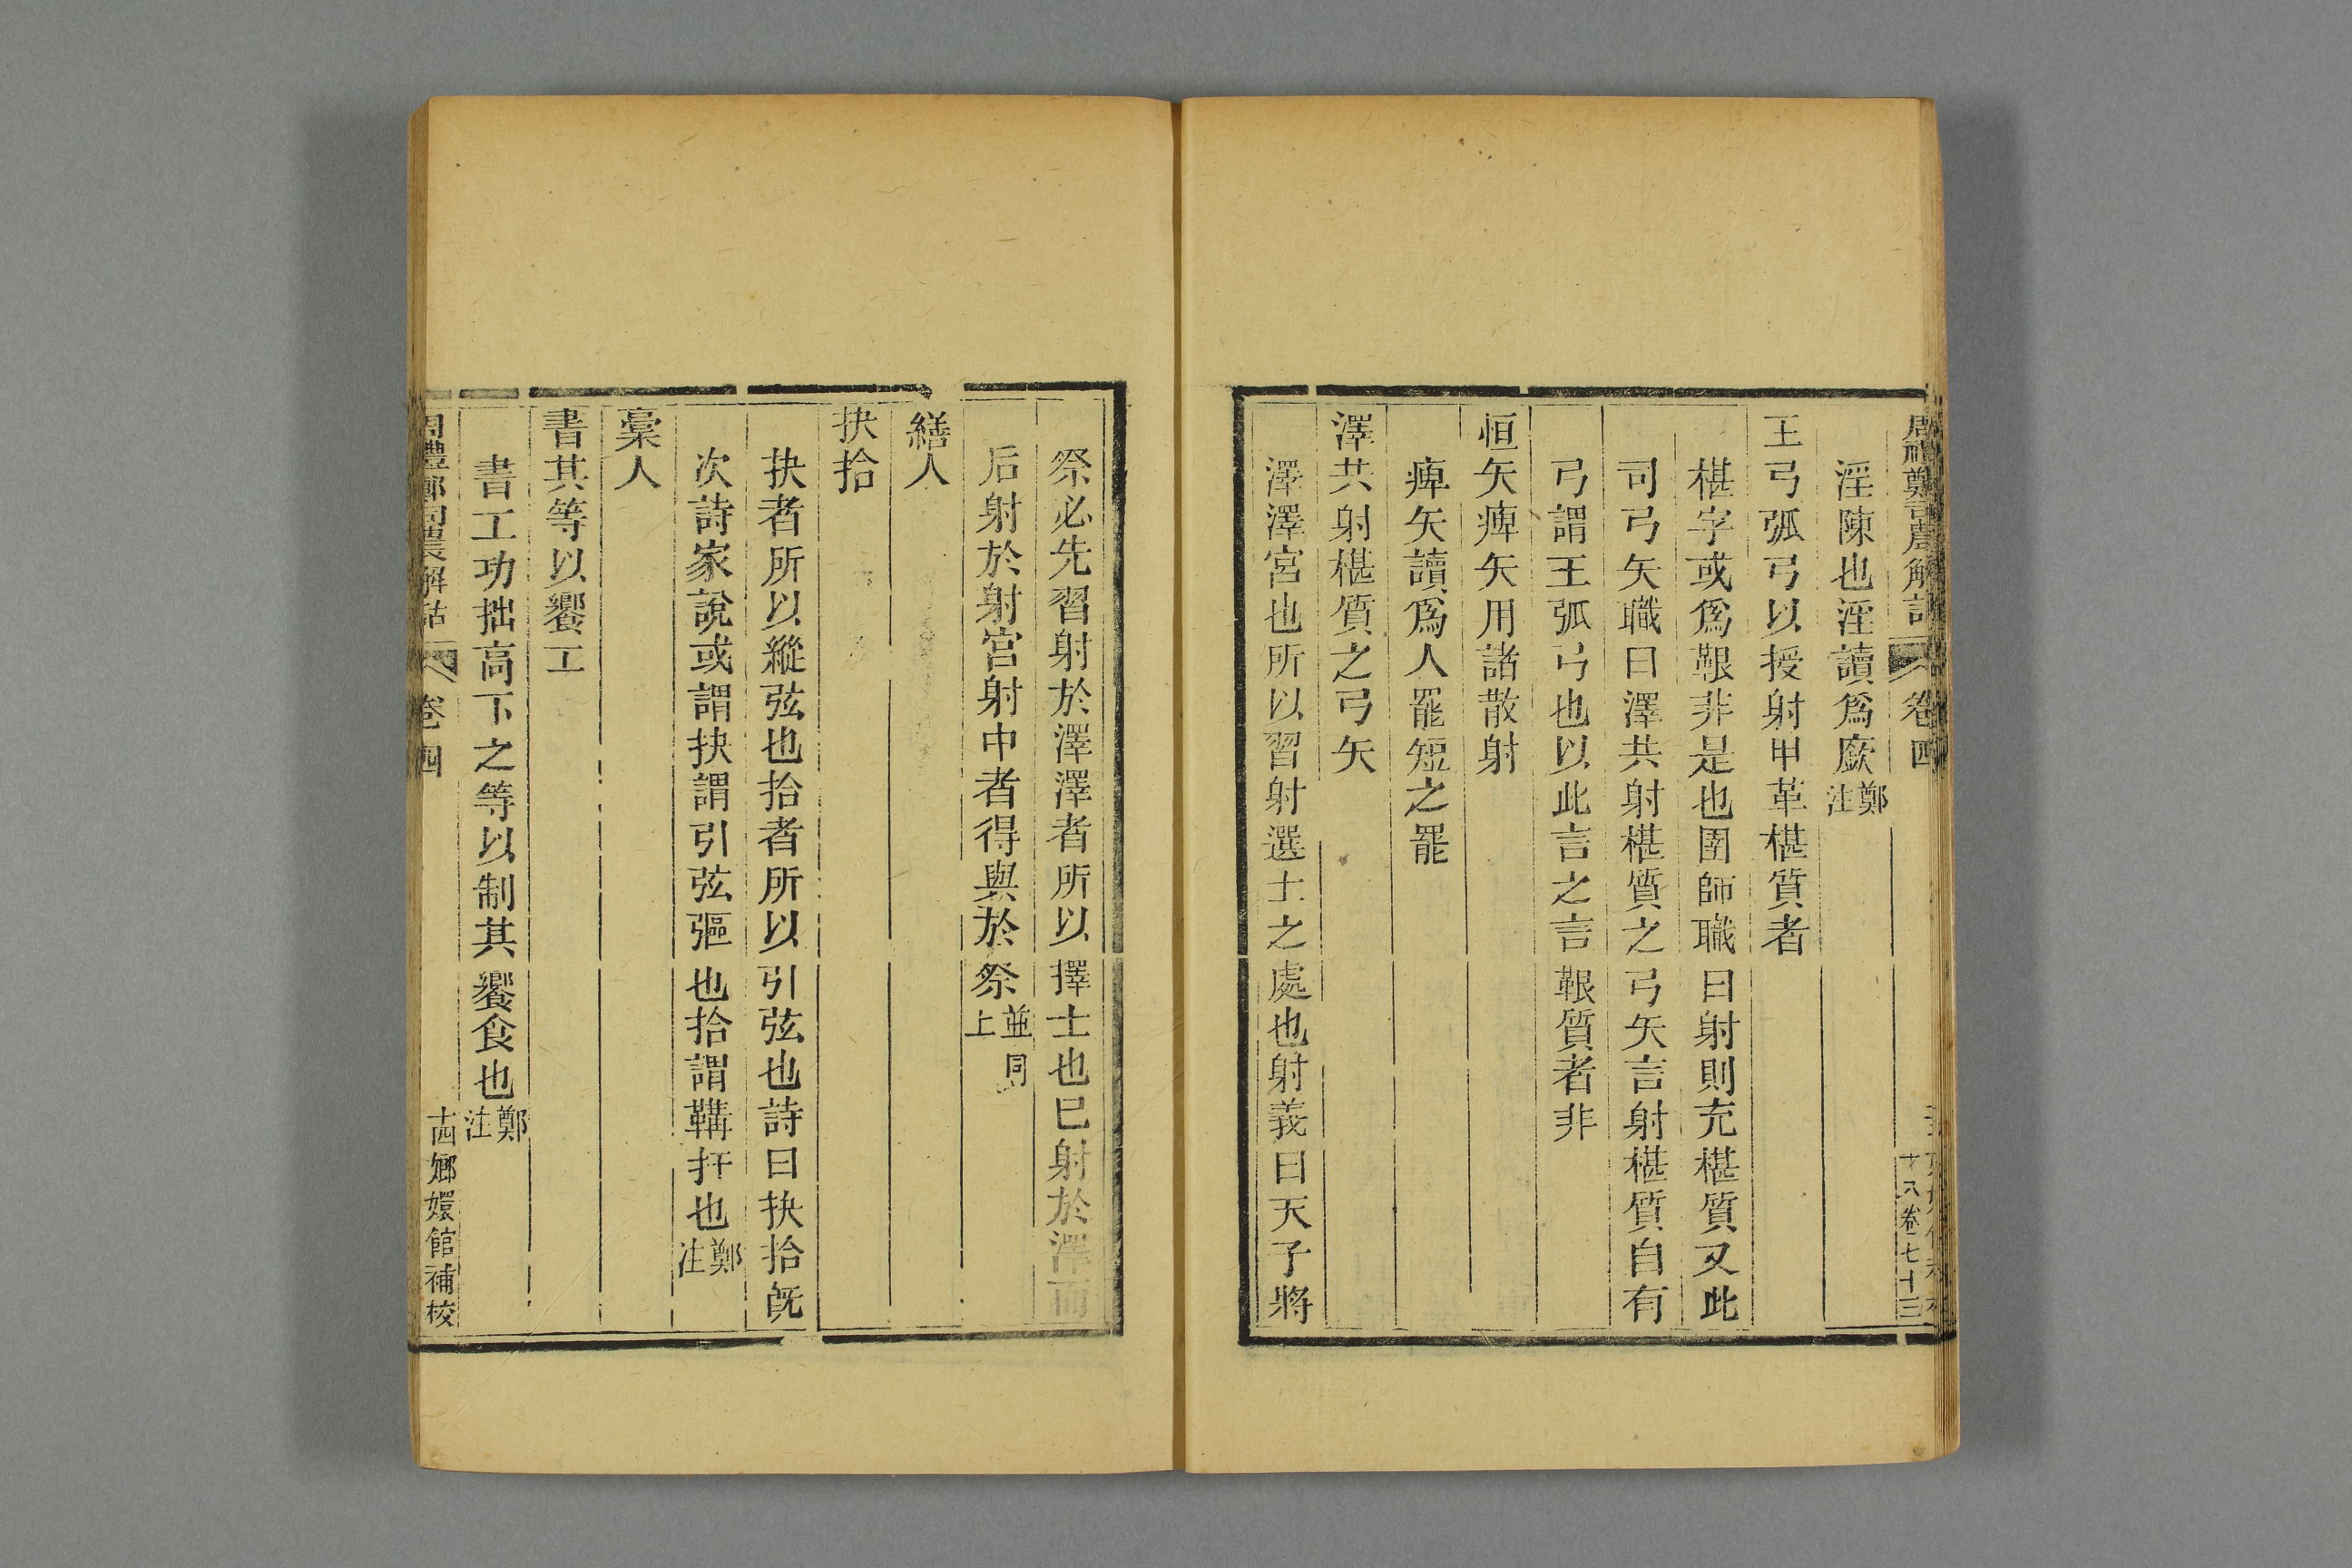 周禮鄭司農解詁 卷四
淫陳也淫讀爲廞鄭注
王弓弧弓以授射甲革椹質者
椹字或爲䩐非是也圉師職曰射則充椹質又此
司弓矢職曰澤共射椹質之弓矢言射椹質自有
弓謂王弧弓也以此言之言䩐質者非
恒矢痺矢用諸散射
痺矢讀爲人罷短之罷
澤共射椹質之弓矢
澤澤宮也所以習射選士之處也射義曰天子將
祭必先習射於澤澤者所以擇士也已射於澤而
后射於射宮射中者得與於祭並同上
繕人
抉拾
抉者所以縱弦也拾者所以引弦也詩曰抉拾旣
次詩家說或謂抉謂引弦彄也拾謂韝扞也鄭注
槀人
書其等以饗工
書工功拙高下之等以制其饗食也鄭注
周禮鄭司農解詁 卷四 十四 嫏嬛館補校